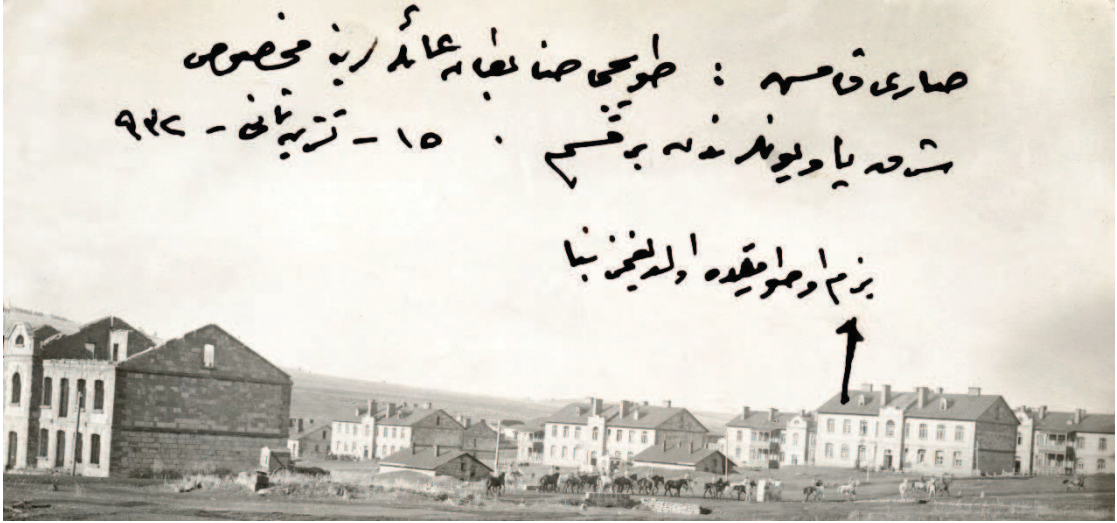 صاری قامش : طوپجی ضابطان عائله‌لرینه مخصوص
شرق پاویونلرندن بر قسم . ١٥ - تشرین ثانی - ٩٣٢
بزم اوطوردیغمز بنا